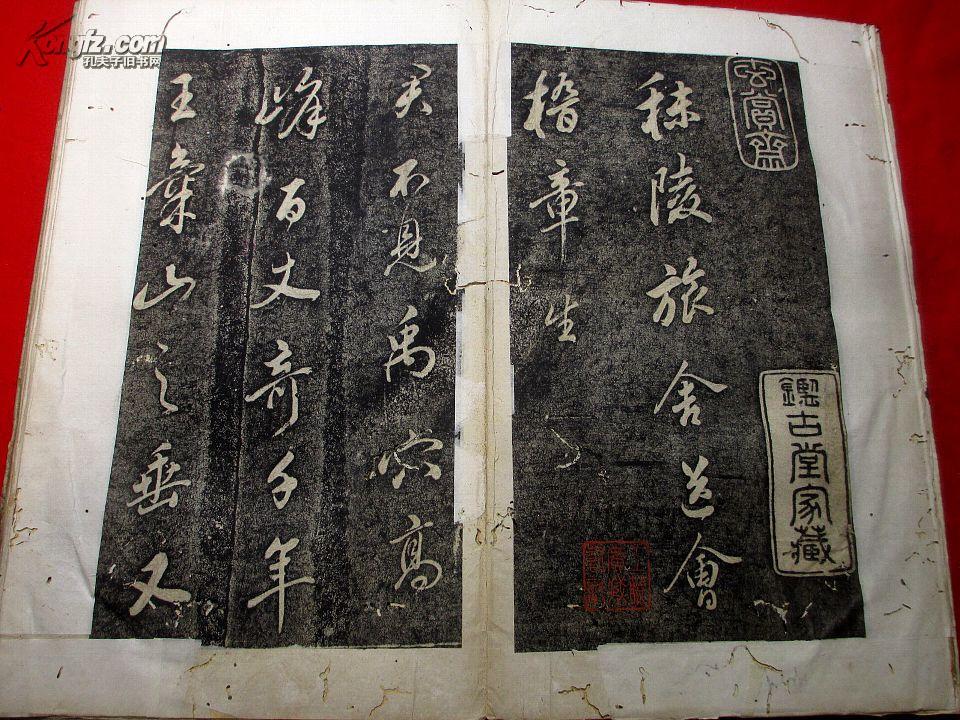 Kongfz.com
孔夫子旧书网
玄賞齋
鑑古堂家藏
秣陵旅舍送會
稽章生
君不見禹穴高
峰百丈奇千年
王 山之垂又